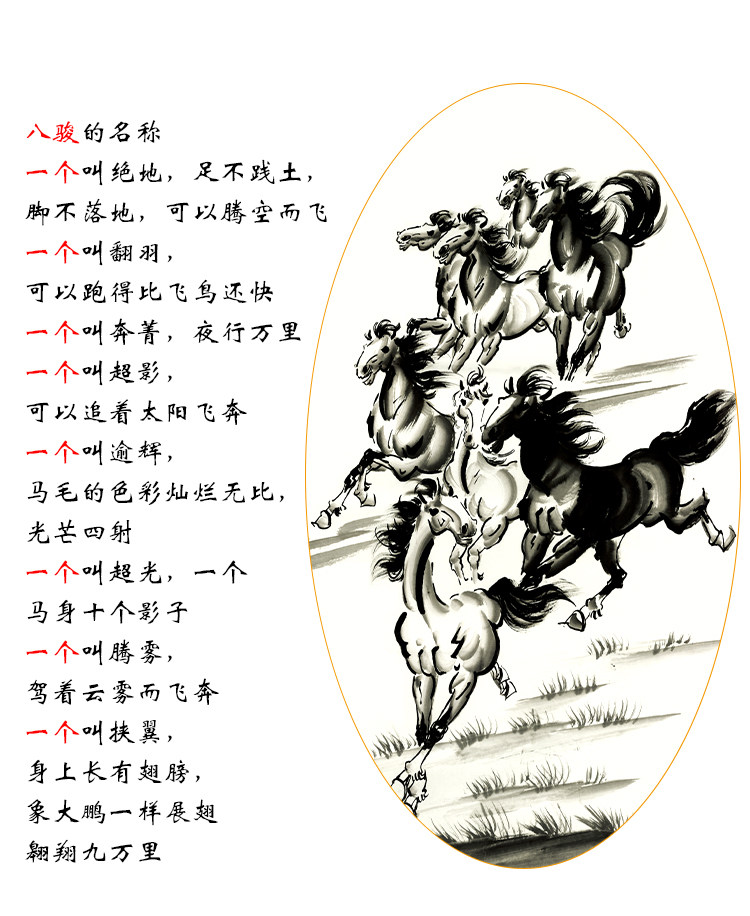 八骏的名称
一个叫绝地，足不践土，
脚不落地，可以腾空而飞
一个叫翻羽，
可以跑得比飞鸟还快
一个叫奔菁，夜行万里
一个叫超影，
可以追着太阳飞奔
一个叫逾辉，
马毛的色彩灿烂无比，
光芒四射
一个叫超光，一个
马身十个影子
一个叫腾雾，
驾着云雾而飞奔
一个叫挟翼，
身上长有翅膀，
象大鹏一样展翅
翱翔九万里